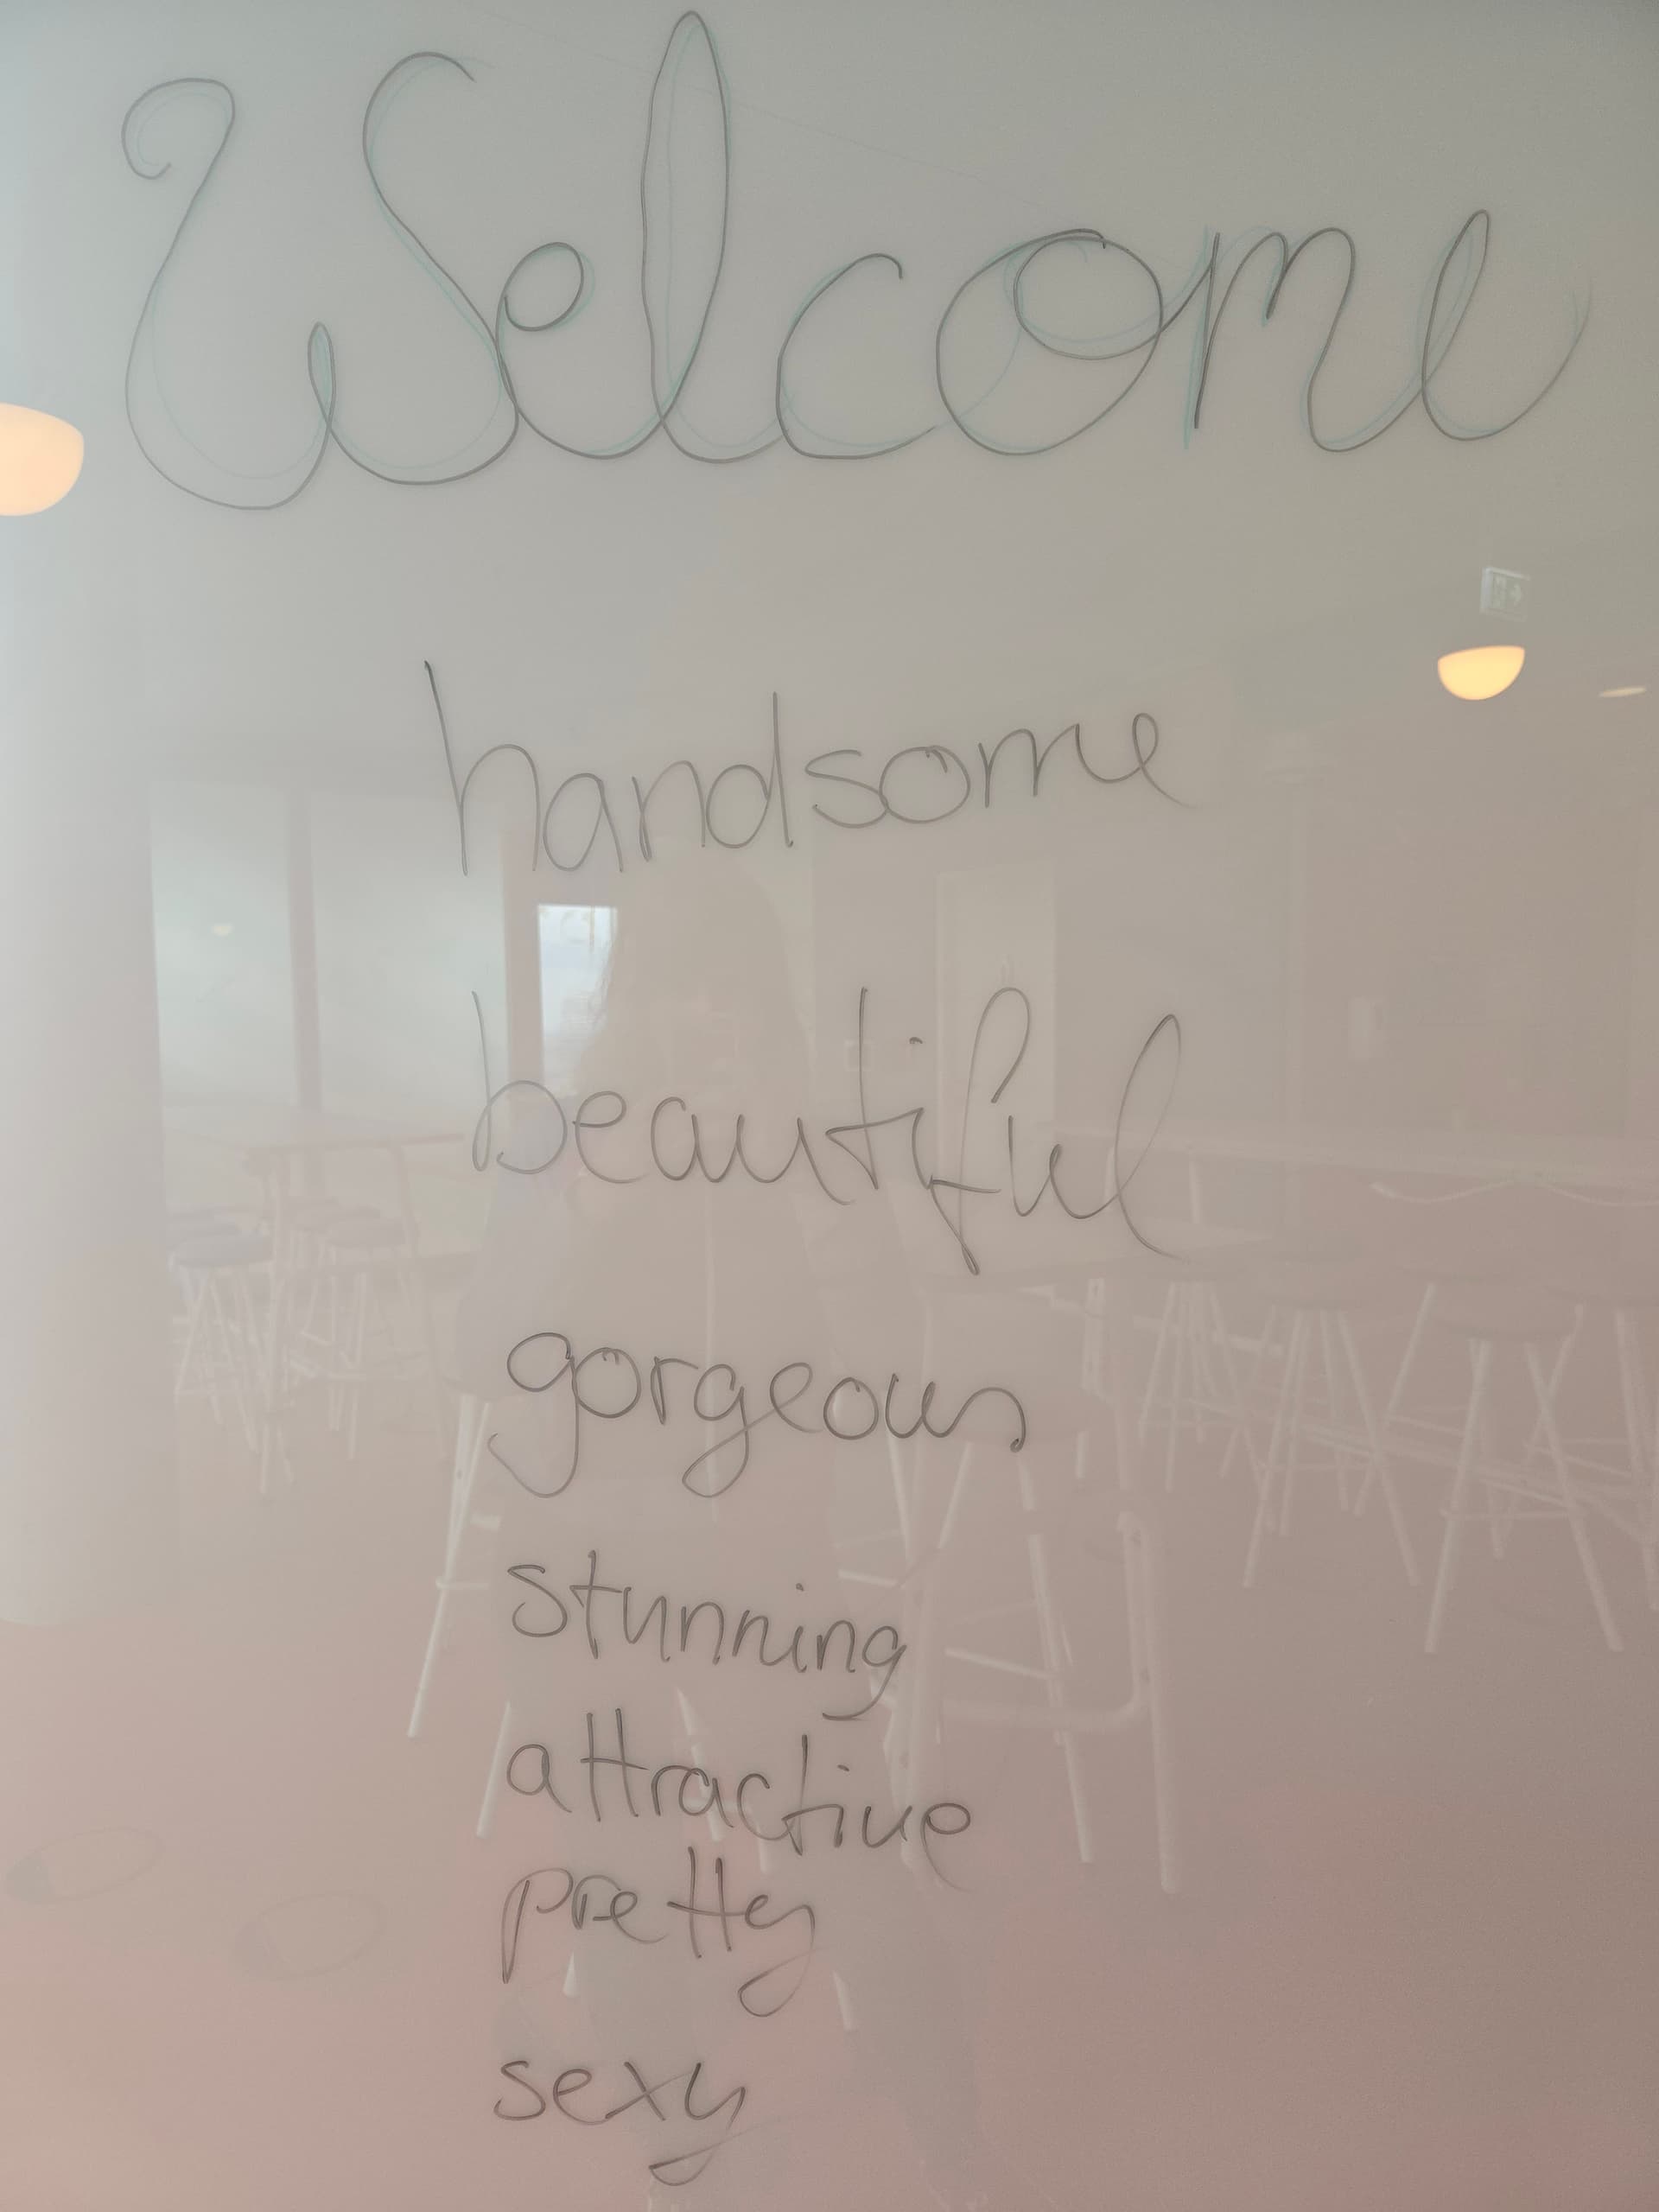 Welcome
handsome
beautiful
gorgeous
stunning
attractive
pretty
sexy